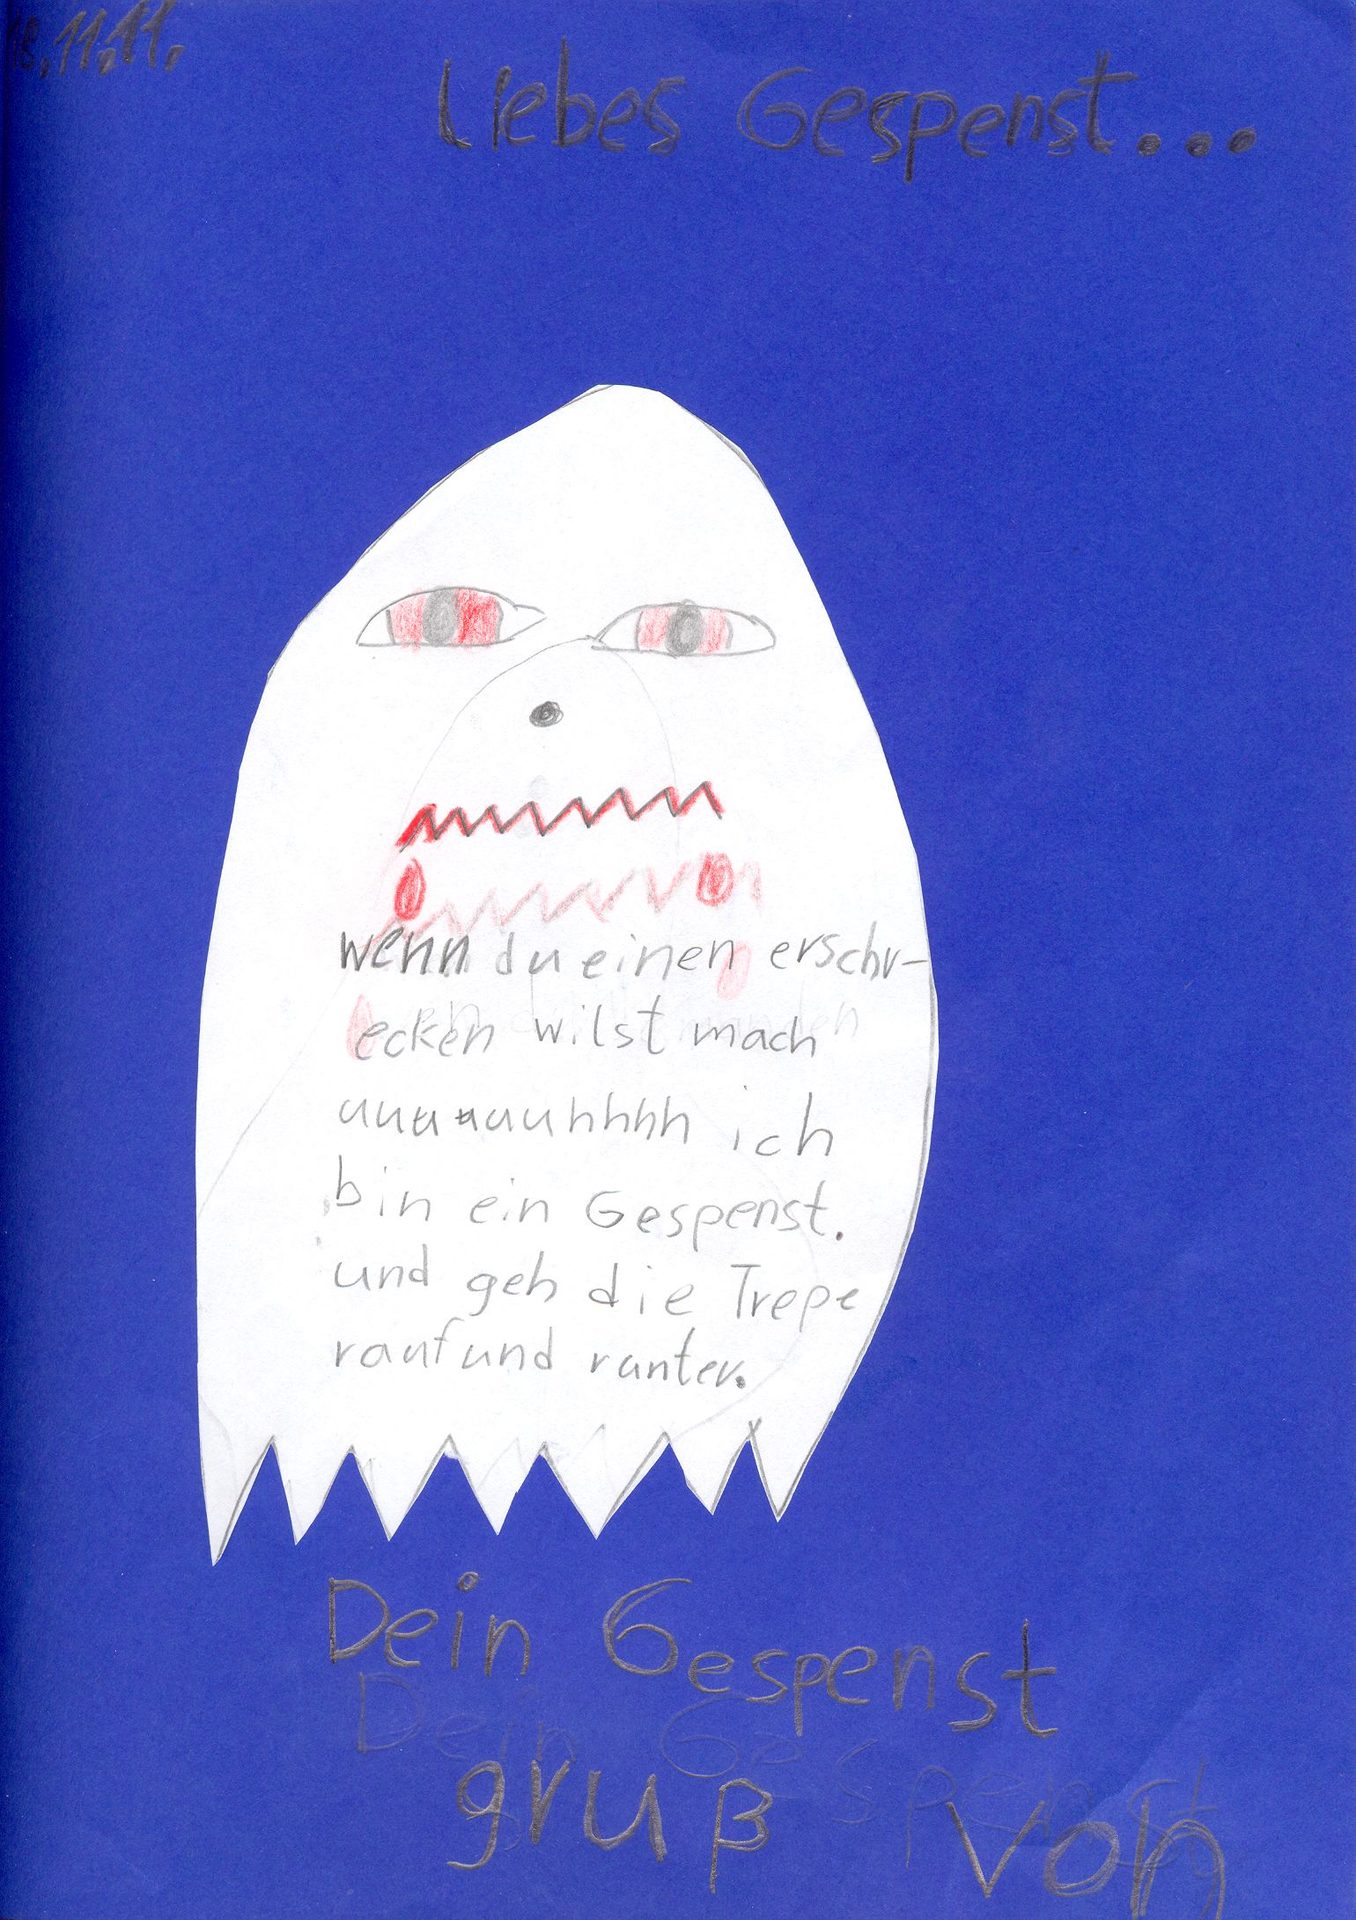 18.11.11.
Liebes Gespenst...
wenn du einen erschr-
ecken wilst mach
uuuuuuuhhhh ich
bin ein Gespenst.
und geh die Trepe
rauf und runter.
Dein Gespenst
Dein Gespenst
gruß von